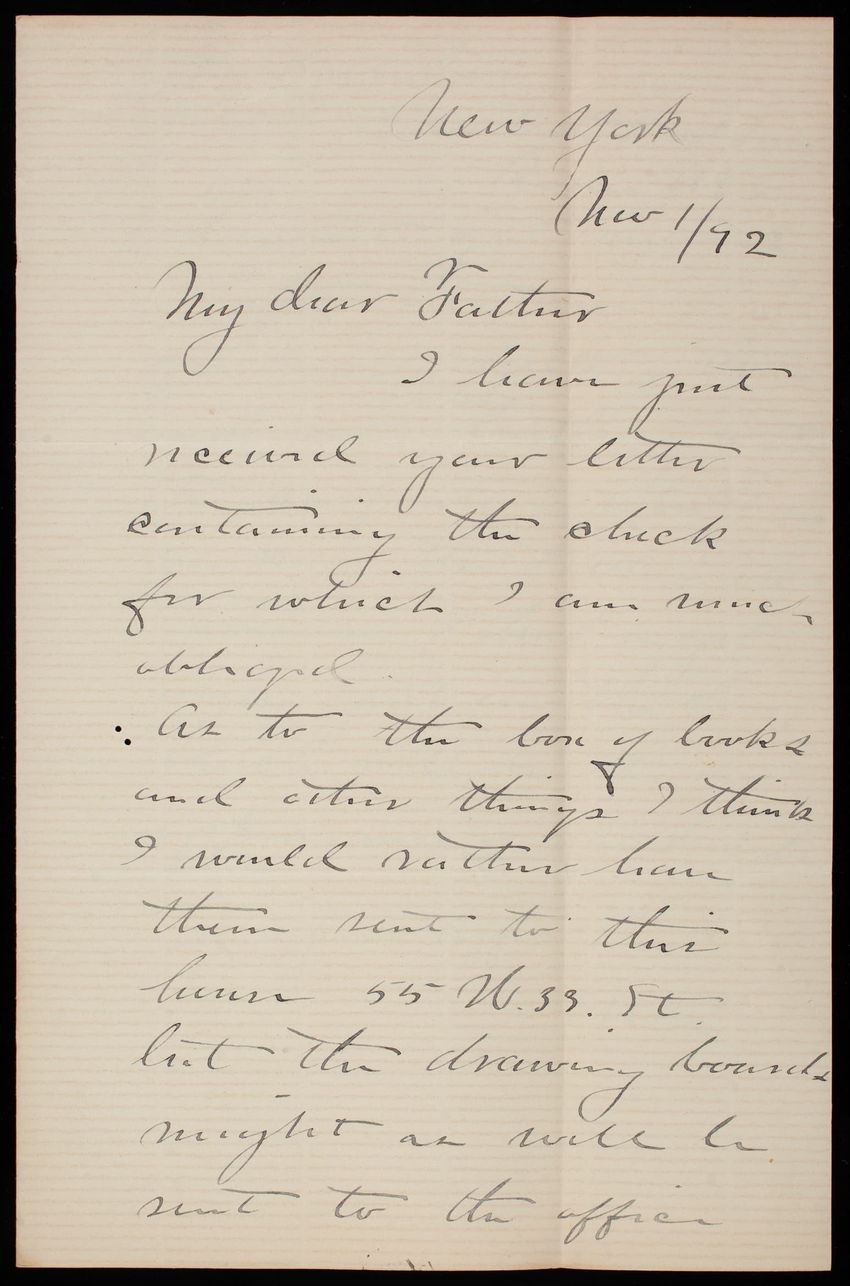 New York
Nov 1/92
My dear Father
I have just
received your letter
containing the check
for which I am much
obliged.
As to the box of books
and other things I think
I would rather have
them sent to this
house 55 W. 33. St.
but the drawing boards
might as well be
sent to the office